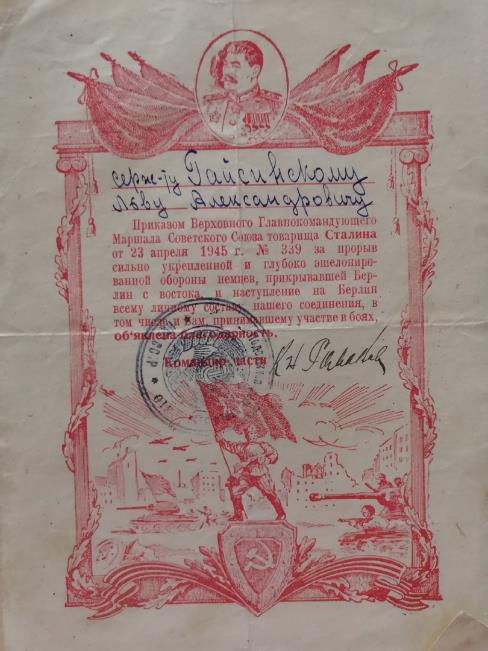 серж-ту Гайсинскому
Льву Александровичу
Приказом Верховного Главнокомандующего
Маршала Советского Союза товарища Сталина
от 23 апреля 1945 г. № 339 за прорыв
сильно укрепленной и глубоко эшелониро-
ванной обороны немцев, прикрывавшей Бер-
лин с востока, и наступление на Берлин
всему личному составу нашего соединения, в
том числе и Вам, принимавшему участие в боях,
об'явлена благодарность.
Командир части